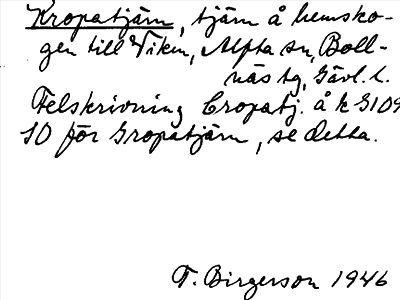 Kropatjärn, tjärn å hemsko-
gen till Viken, Alfta sn, Boll-
näs tg, Gävl. l.
Felskrivning Cropatj. å k G109
SO för Gropatjärn, se detta.
T. Birgerson 1946